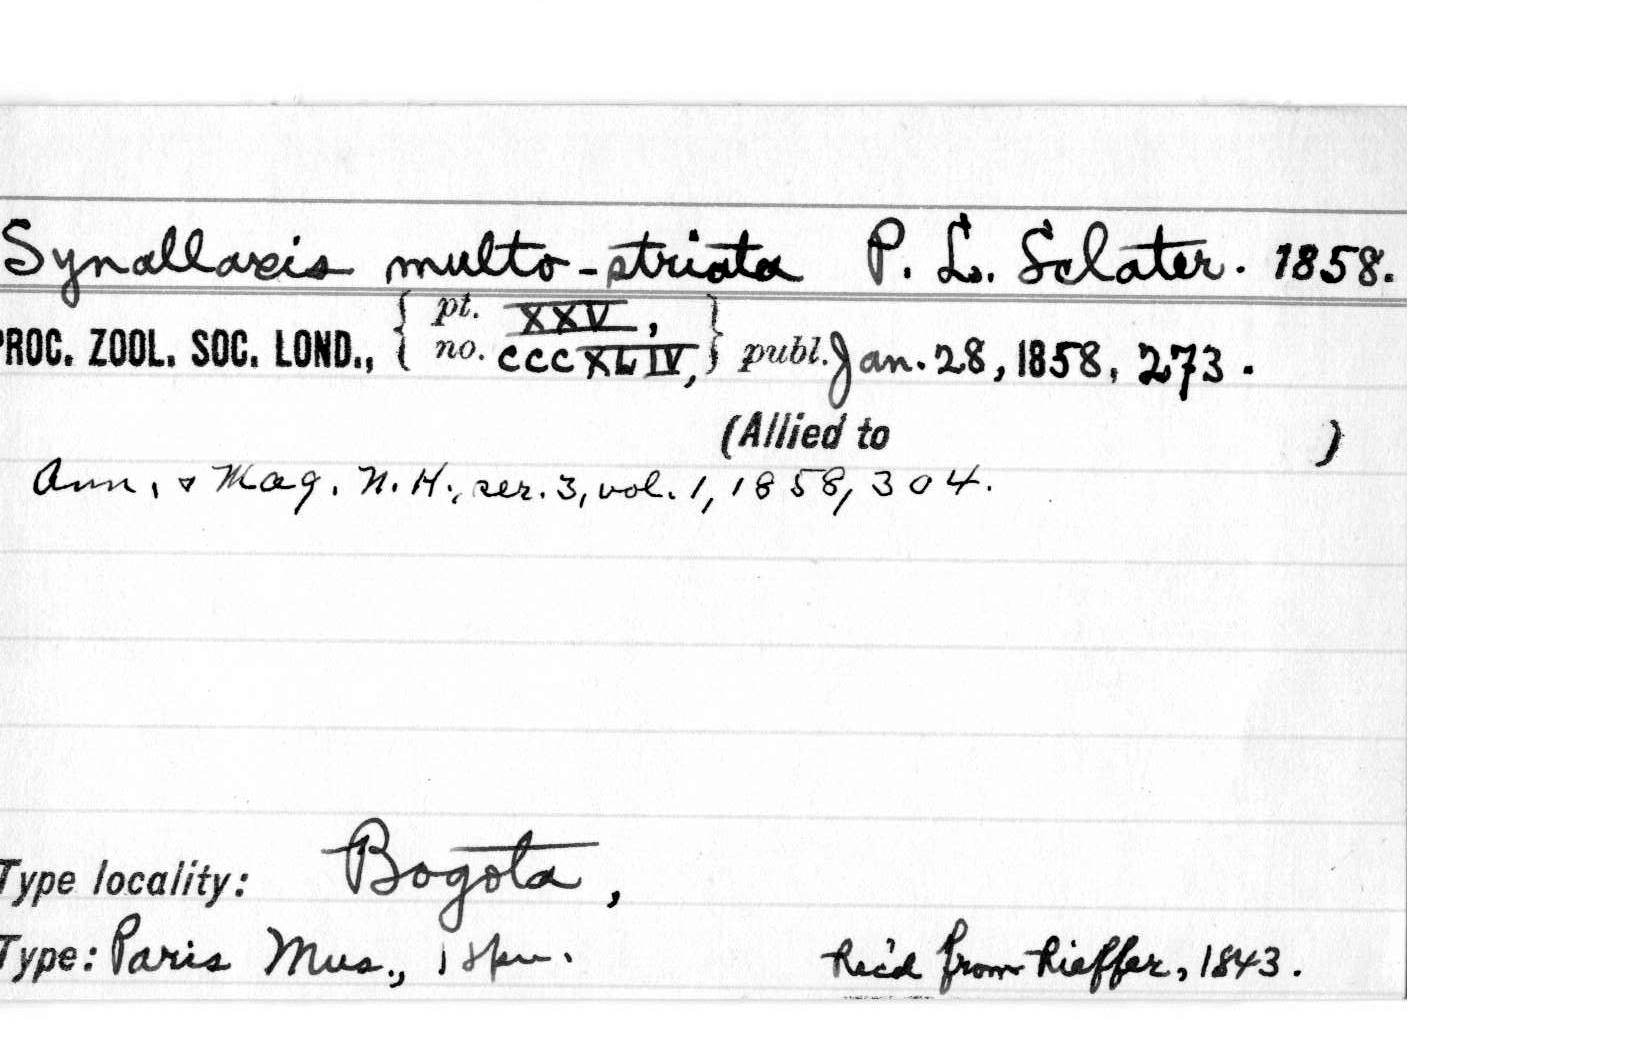 Synallaxis multo-striata P. L. Sclater. 1858.
PROC. ZOOL. SOC. LOND., { pt. XXV, no. CCCXLIV, } publ. Jan. 28, 1858, 273.
(Allied to )
Ann. & Mag. N.H., ser. 3, vol. 1, 1858, 304.
Type locality: Bogota,
Type: Paris Mus., 1 spm. Rec'd from Rieffer, 1843.